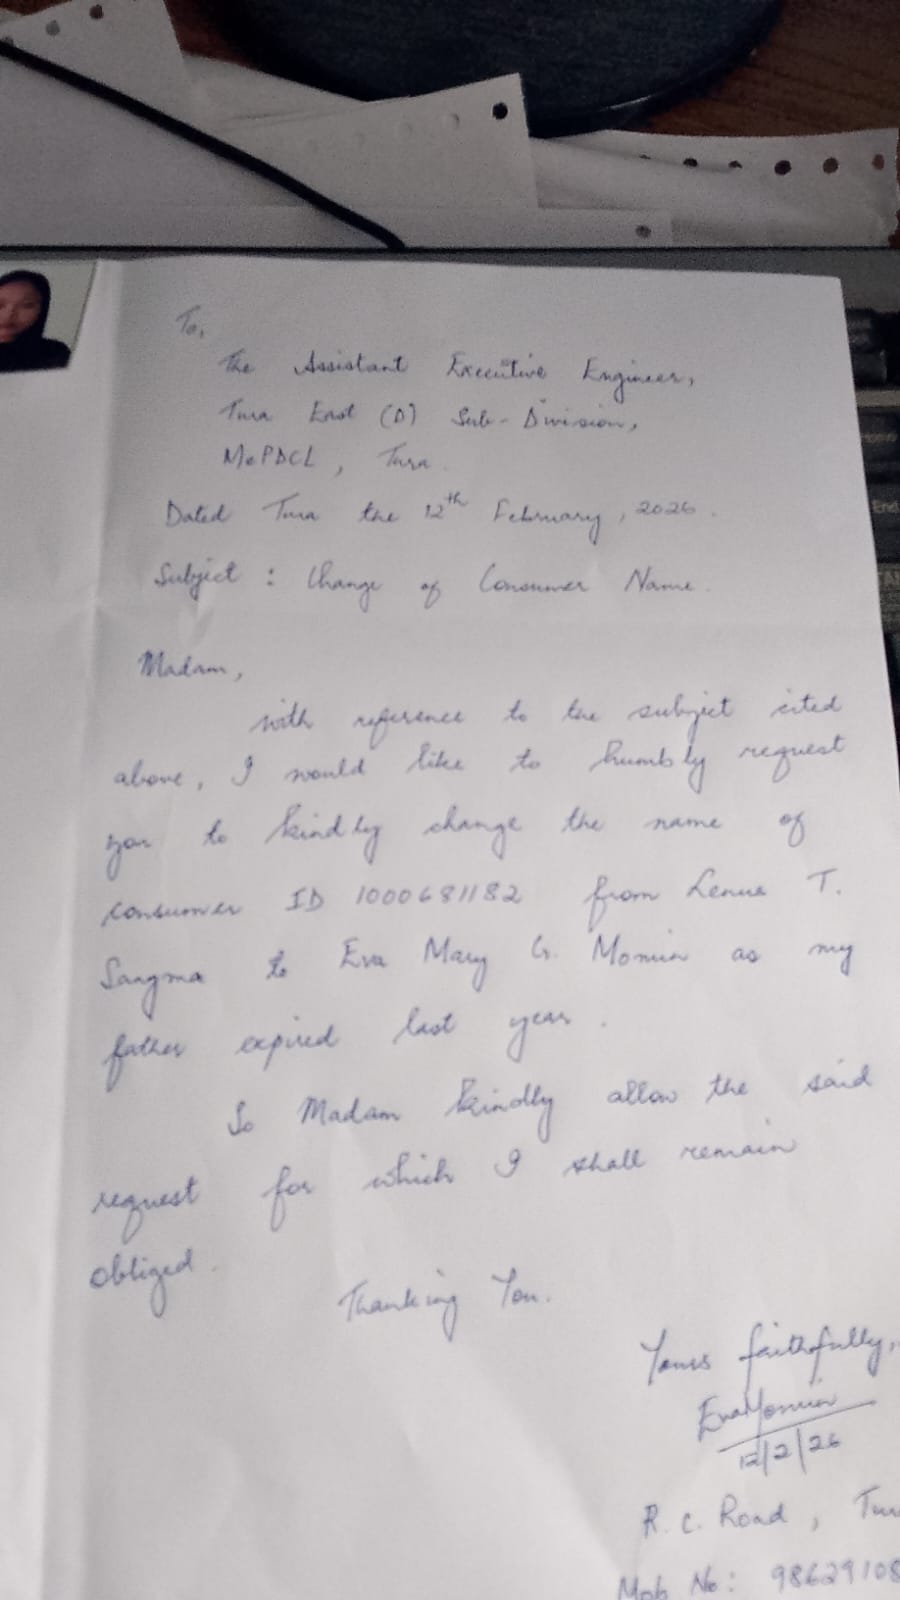 To,
The Assistant Executive Engineer,
Tura East (D) Sub-Division,
MePDCL, Tura.
Dated Tura the 12th February, 2026.
Subject : Change of Consumer Name.
Madam,
with reference to the subject cited
above, I would like to humbly request
you to kindly change the name of
consumer ID 1000681182 from T.
Sangma to Eva Mary G. Momin as my
father expired last year.
So Madam kindly allow the said
request for which I shall remain
obliged.
Thanking You.
Yours faithfully,
EvaMomin
12/2/26
R.C. Road,
Mob No: 98629108
End